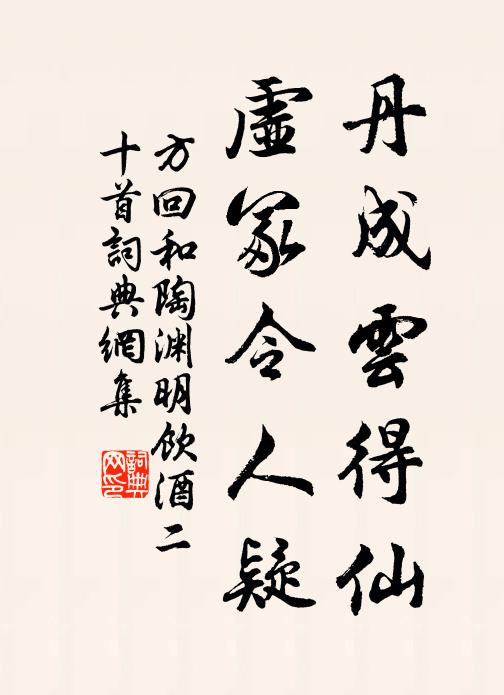 丹成雲得仙
虛冢令人疑
方回和陶淵明飲酒二
十首詞典網集
詞典
网印